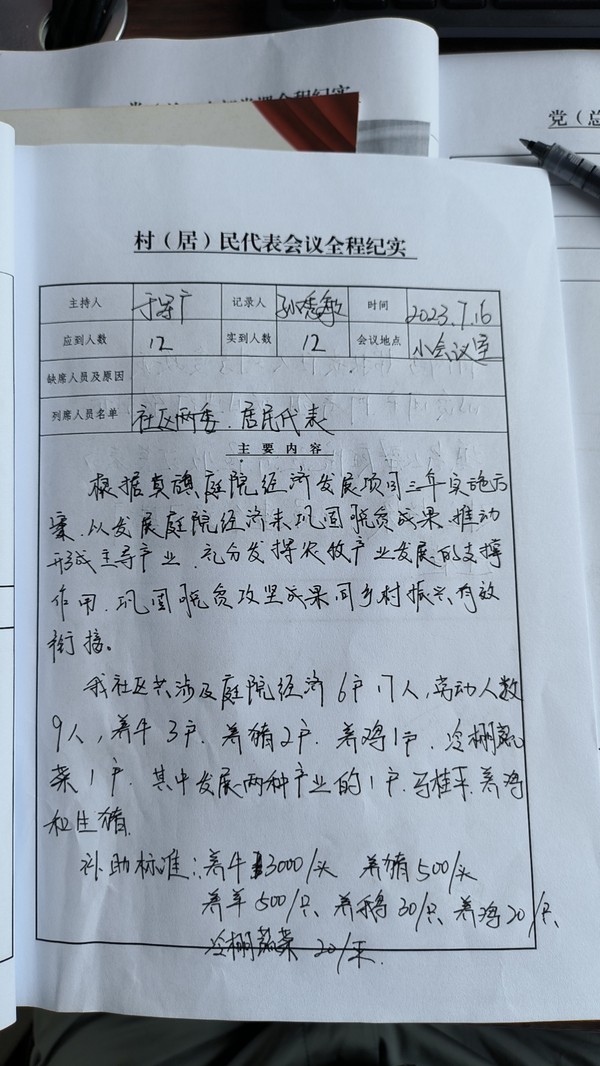 全程纪实
党（总
村（居）民代表会议全程纪实
主持人 于 广 记录人 孙秀敏 时间 2023.7.16
应到人数 12 实到人数 12 会议地点 小会议室
缺席人员及原因
列席人员名单 社区两委、居民代表
主要内容
根据 旗庭院经济发展项目三年实施方
案，从发展庭院经济来巩固脱贫成果，推动
形成主导产业，充分发挥农牧产业发展的支撑
作用，巩固脱贫攻坚成果同乡村振兴有效
衔接。
我社区共涉及庭院经济6户17人，劳动人数
9人，养牛3户，养猪2户，养鸡1户，冷棚蔬
菜1户，其中发展两种产业的1户，马桂平，养鸡
和生猪。
补助标准：养牛3000/头 养猪500/头
养羊500/只、养鹅30/只、养鸡20/只、
冷棚蔬菜 20/米.